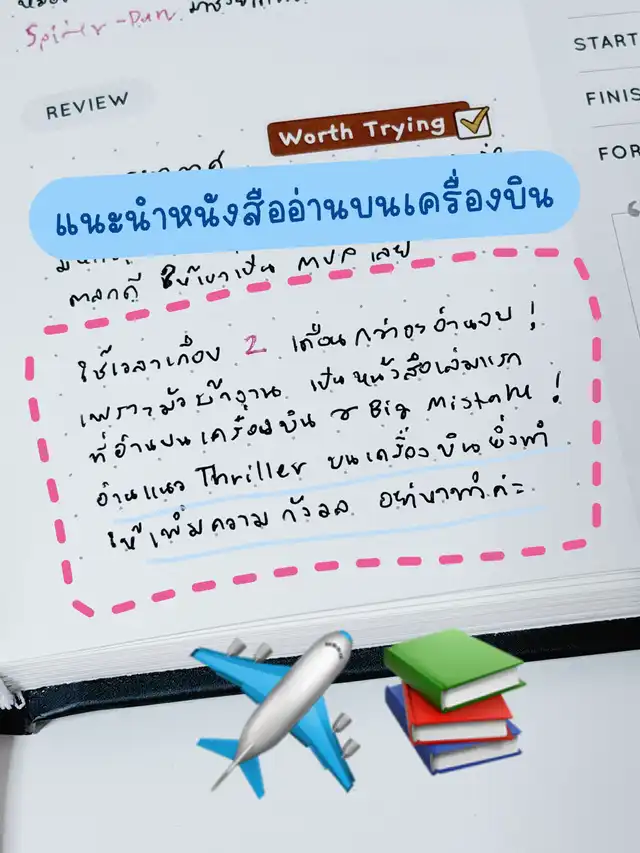 Spider-Man
REVIEW
START
FINIS
FOR
Worth Trying
แนะนำหนังสืออ่านบนเครื่องบิน
ตลกดี ให้เขาเป็น MVP เลย
ใช้เวลาเกือบ 2 เดือนกว่าจะอ่านจบ!
เพราะมัวบ้างาน เป็นหนังสือเล่มแรก
ที่อ่านบนเครื่องบิน & Big Mistake!
อ่านแนว Thriller บนเครื่องบินยิ่งทำ
ให้เพิ่มความกังวล อย่าหาทำค่ะ